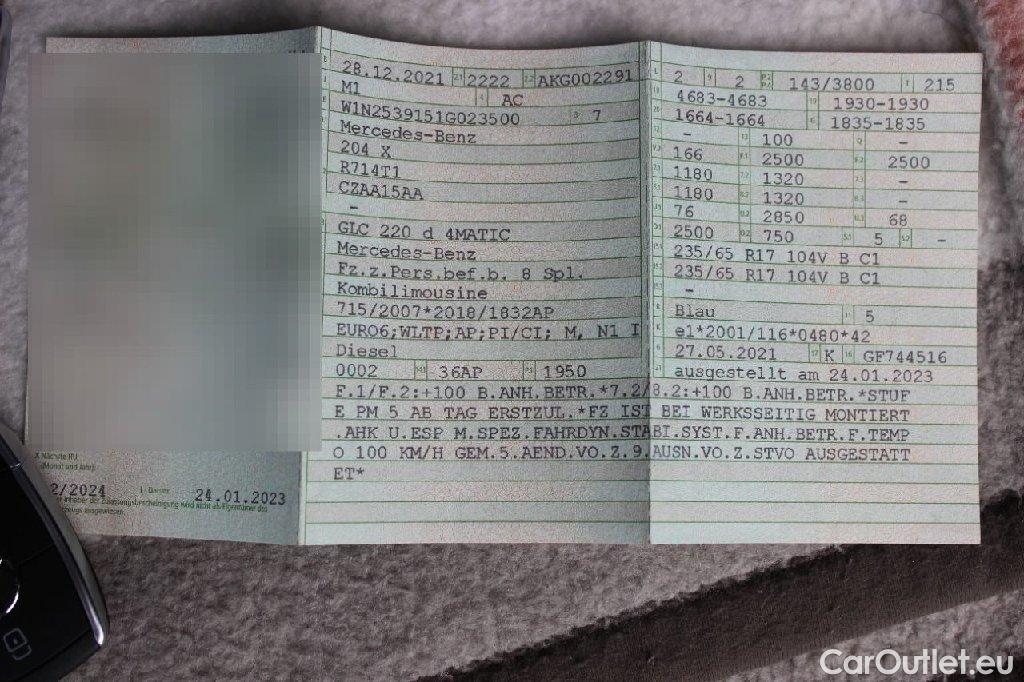 28.12.2021 2222 AKG002291
M1 AC
W1N2539151G023500 7
Mercedes-Benz
204 X
R714T1
CZAA15AA
-
GLC 220 d 4MATIC
Mercedes-Benz
Fz.z.Pers.bef.b. 8 Spl.
Kombilimousine
715/2007*2018/1832AP
EURO6;WLTP;AP;PI/CI; M, N1 I
Diesel
0002 36AP 1950
2 2 143/3800 215
4683-4683 1930-1930
1664-1664 1835-1835
- 100 -
166 2500 2500
1180 1320 -
1180 1320 -
76 2850 68
2500 750 5 -
235/65 R17 104V B C1
235/65 R17 104V B C1
-
Blau 5
e1*2001/116*0480*42
27.05.2021 K GF744516
ausgestellt am 24.01.2023
F.1/F.2:+100 B.ANH.BETR.*7.2/8.2:+100 B.ANH.BETR.*STUF
E PM 5 AB TAG ERSTZUL.*FZ IST BEI WERKSSEITIG MONTIERT
.AHK U.ESP M.SPEZ.FAHRDYN.STABI.SYST.F.ANH.BETR.F.TEMP
O 100 KM/H GEM.5.AEND.VO.Z.9.AUSN.VO.Z.STVO AUSGESTATT
ET*
X Nächste HU
(Monat und Jahr)
2/2024 I Datum 24.01.2023
Inhaber der Zulassungsbescheinigung wird nicht als Eigentümer des
ausgewiesen.
CarOutlet.eu